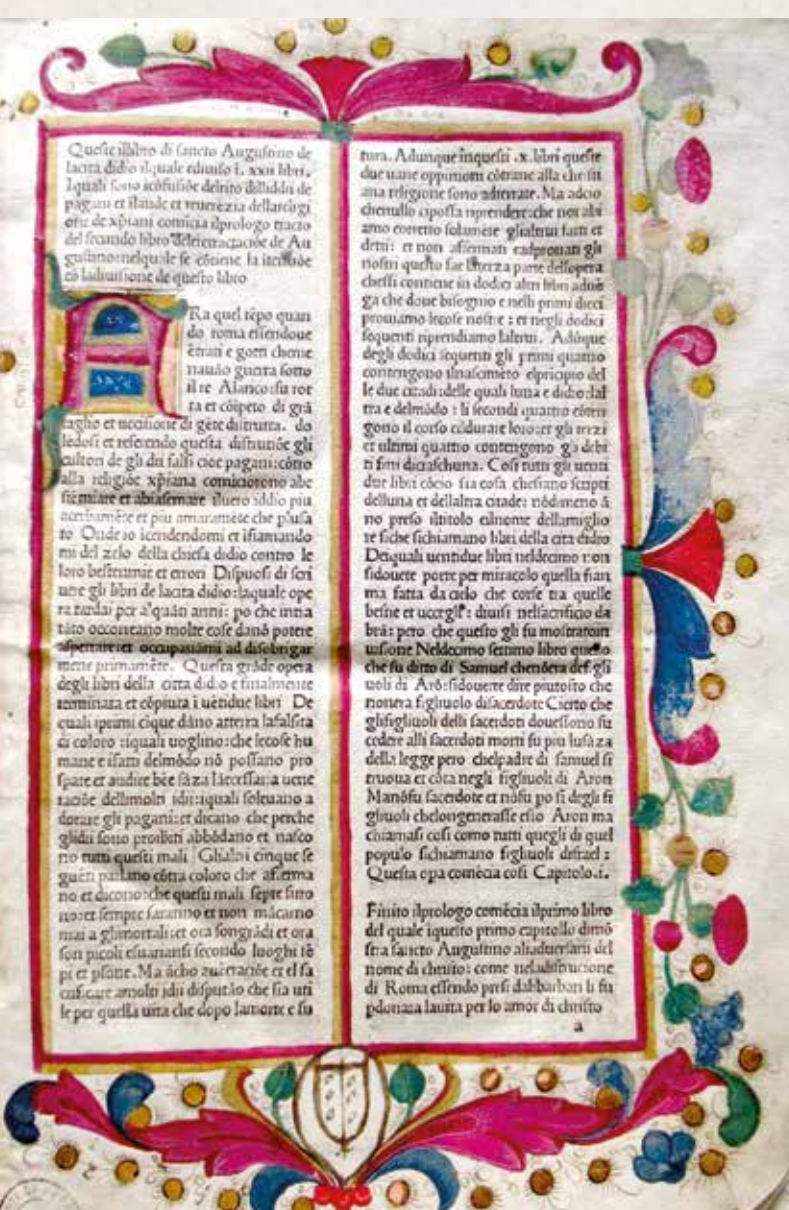 Queste illibro di sancto Augustino de
lacita didio ilquale ediuiso i. xxii libri.
Iquali sono icōfusiōe delrito delliddii de
pagani et ilaude et reuerēzia dellareligi
one de xp̄iani comīcia ilprologo tracto
del secundo libro delretractaciōe de Au
gustino: nelquale se cōtiene la itentiōe
cō ladiuisione de questo libro
Ra quel tēpo quan
do roma essendoue
ētrati e goti cheme
nauāo guerra sotto
il re Alarico: fu rot
ta et cōlpeto di grā
taglio et uccisione di gēte distrutta. do
lēdosi et referendo questa distrutiōe gli
cultori de gli dii falsi cioe pagani: cōtro
alla religiōe xp̄iana cominciorono abe
stemiare et abiasemare iluero iddio piu
acerbamēte et piu amaramēte che pl'usa
to Onde io icendendomi et ifiamando
mi del zelo della chiesa didio contro le
loro bestemmie et errori Disposi di scri
uere gli libri de lacita didio: laquale ope
ra tardai per alquāti anni: po che intra
tāto occorreano molte cose danō potere
aspettare: et occupauāmi ad disobrigar
mene primamēte. Questa grāde opera
degli libri della citta didio e finalmente
terminata et cōpiuta i uētidue libri De
quali iprimi cīque dāno atterra lafalsita
di coloro: iquali uoglino: che lecose hu
mane e ifatti delmōdo nō possano pro
sparare et audire bēe sāza lanecessaria uene
raciōe dellimolti idii: iquali soleuano a
dorare gli pagani: et dicano che perche
glidii sono proibiti abbōdano et nasco
no tutti questi mali Glialtri cinque se
guēti parlano cōtra coloro che afferma
no et dicono: che questi mali sēpre furo
no: et sempre saranno et non mācarno
mai a glimortali: et ora songrādi et ora
son picoli esuariansi secondo luoghi tē
pi et psone. Ma ācho aueraciōe et el sa
crificare amolti idii disputāo che sia uti
le per quella uita che dopo lamorte e fu
tura. Adunque inquesti .x. libri queste
due uane oppinioni cōtrarie alla christi
ana religione sono adterrate. Ma adcio
chenullo cipossa riprendere: che noi abi
amo corretto solamēte glialtrui fatti et
detti: et non affermati eadprouati gli
nostri questo fae laterza parte dellopera
chessi contiene in dodici altri libri aduē
ga che doue bisogno e nelli primi dieci
prouiamo lecose nostre: et negli dodici
sequenti riprendiamo laltrui. Adūque
degli dodici sequenti gli primi quatro
contengono ilnascimēto elpricipio del
le due citadi: delle quali luna e didio: lal
tra e delmōdo: li secondi quatro cōten
gono il corso eldurare loro: et gli terzi
et ultimi quattro contengono ga debi
ti fini diciaschuna. Cosi tutti gli uenti
due libri cōcio sia cosa chesiano scripti
delluna et dellaltra citade: nōdimeno ā
no preso iltitolo elnome dellamiglio
re siche sichiamano libri della cita didio
Deiquali uentidue libri neldecimo non
sidouete porre per miracolo quella fiam
ma fatta da cielo che corse tra quelle
bestie et uccegli: diuisi nelsacrificio da
brā: pero che questo gli fu mostratoin
uisione Neldecimo settimo libro quello
che fu ditto di Samuel chenōera de figli
uoli di Arō: sidouette dire piutosto che
nonera figliuolo disacerdote Cierto che
glifigliuoli delli sacerdoti douessono su
cedere alli sacerdoti morti fu piu lusāza
della legge pero chelpadre di samuel si
truoua et cōta negli figliuoli di Aron
Manōfu sacerdote et nōfu po si degli fi
gliuoli chelongenerasse esso Aron ma
chiamasi cosi come tutti quegli di quel
popułlo sichiamano figliuoli disrael:
Questa opa comēcia cosi Capitolo.i.
Finito ilprologo comēcia ilprimo libro
del quale iquesto primo capitollo dimō
stra sancto Augustino aliaduersarii del
nome di christo: come neladistrucione
di Roma essendo presi dabbarbari li fu
pdonata lauita per lo amor di christo
a